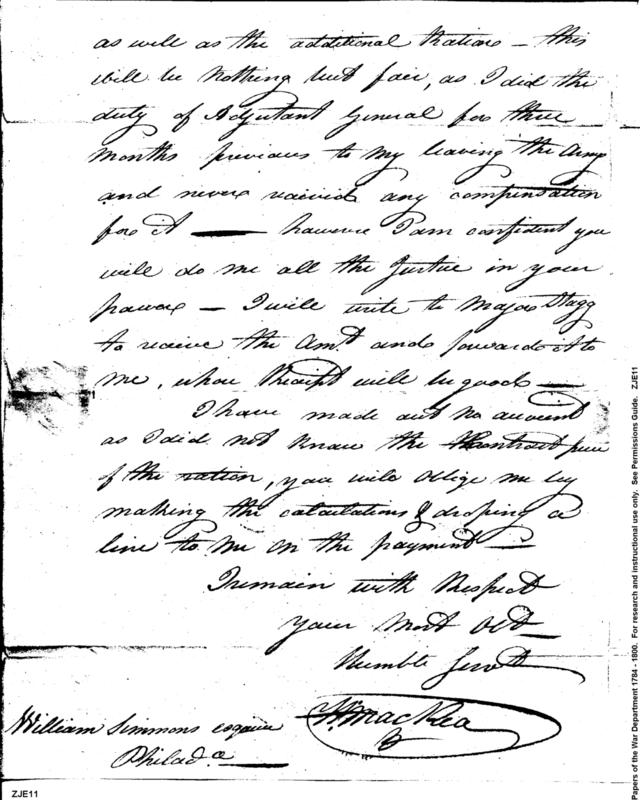 as well as the additional Rations – this
will be nothing but fair, as I did the
duty of Adjutant General for three
months previous to my leaving the Army
and never received any compensation
for it — however I am confident you
will do me all the Justice in your
power – I will write to Major Stagg
to receive the Amt. and forward it to
me, whose Receipt will be good —
I have made out no account
as I did not know the Contract price
of the ration, you will oblige me by
making the calculations & droping a
line to me on the payment —
I remain with Respect
your Most Obt
Humble Servt
Wm MacRea
William Simmons esquire
Philada
ZJE11
Papers of the War Department 1784 - 1800. For research and instructional use only. See Permissions Guide. ZJE11